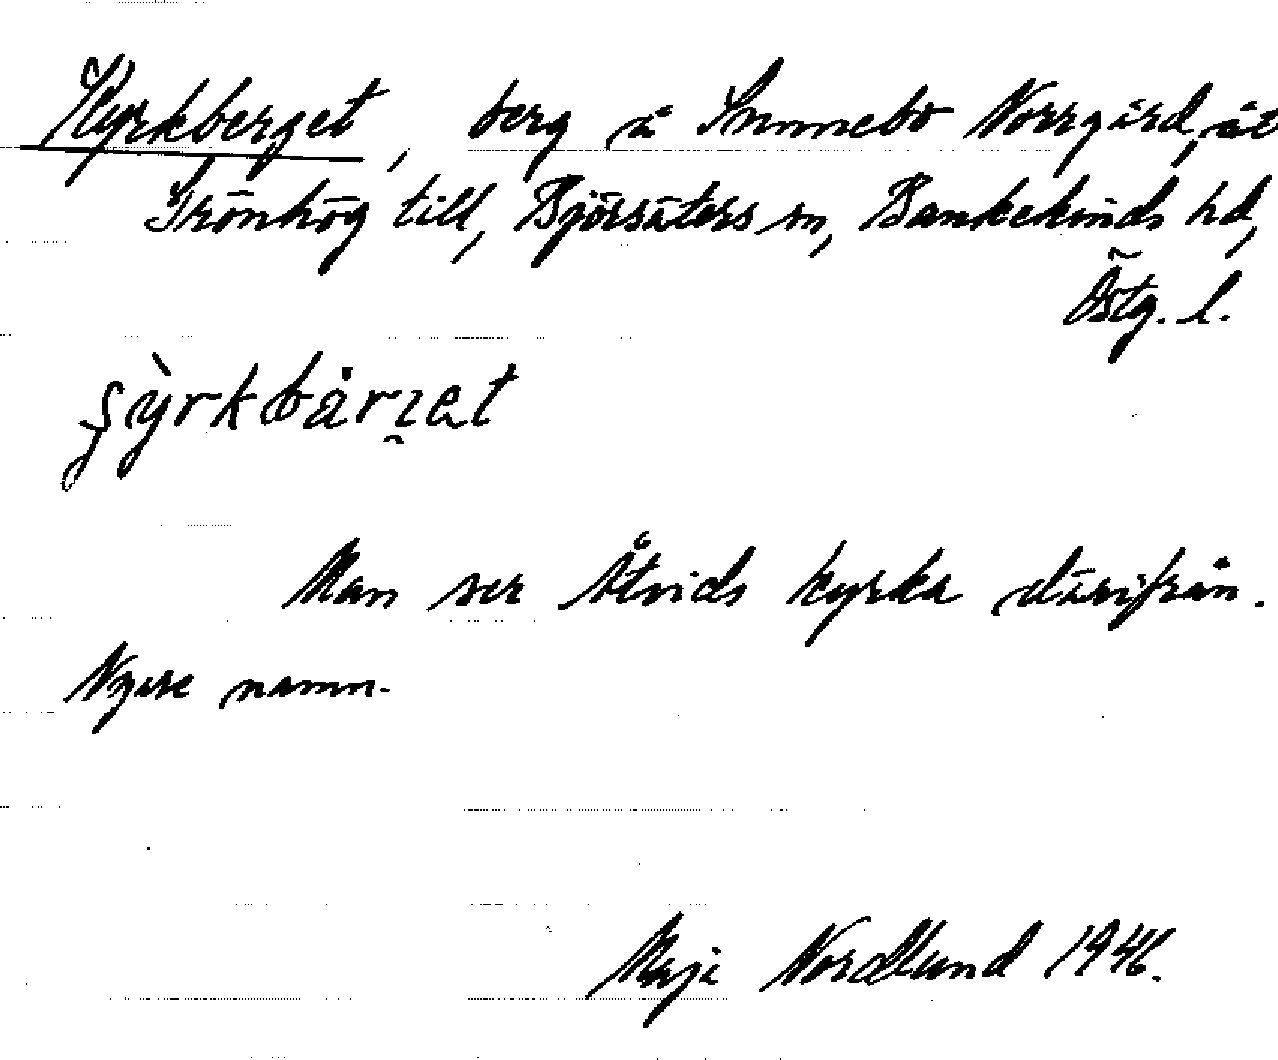 Kyrkberget, berg å Sunnebo Norrgård, åt
Trönhög till, Björsäters sn, Bankekinds hd,
Östg. l.
Man ser Åtvids kyrka därifrån.
Nyare namn.
Maja Nordlund 1946.